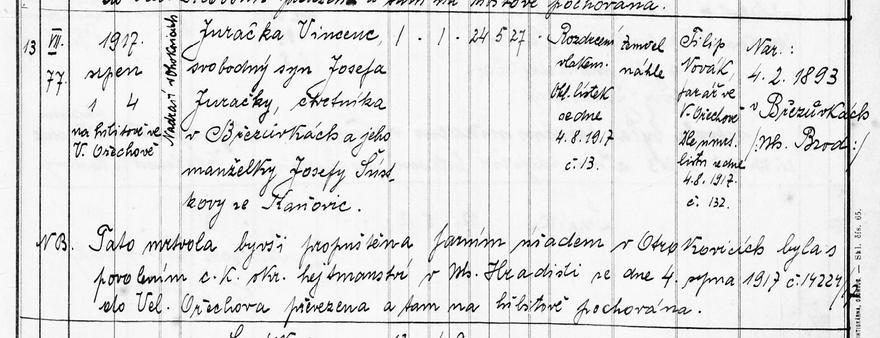 pochována.
13 VII. 1917. Nádraží v Otrokovicích Juračka Vincenc, 1 . 1 . 24 5 27 . Rozdrcení zemřel Filip Nar.:
77. srpen svobodný syn Josefa vlakem. náhle Novák, 4. 2. 1893
1 4 Juračky, čtvrtníka Ohl. lístek farář ve v Březůvkách
na hřbitově ve v Březůvkách a jeho ze dne V. Ořechově /Uh. Brod:/
V. Ořechově manželky Josefy Šůst- 4.8.1917 listu ze dne
kovy ze Kaňovic. č. 13. 4.8.1917.
č. 132.
NB. Tato mrtvola byvši propuštěna farním úřadem v Otrokovicích byla s
povolením c. k. okr. hejtmanství v Uh. Hradišti ze dne 4. srpna 1917 č. 14224/
do Vel. Ořechova převezena a tam na hřbitově pochována.
Skl. čís. 65.